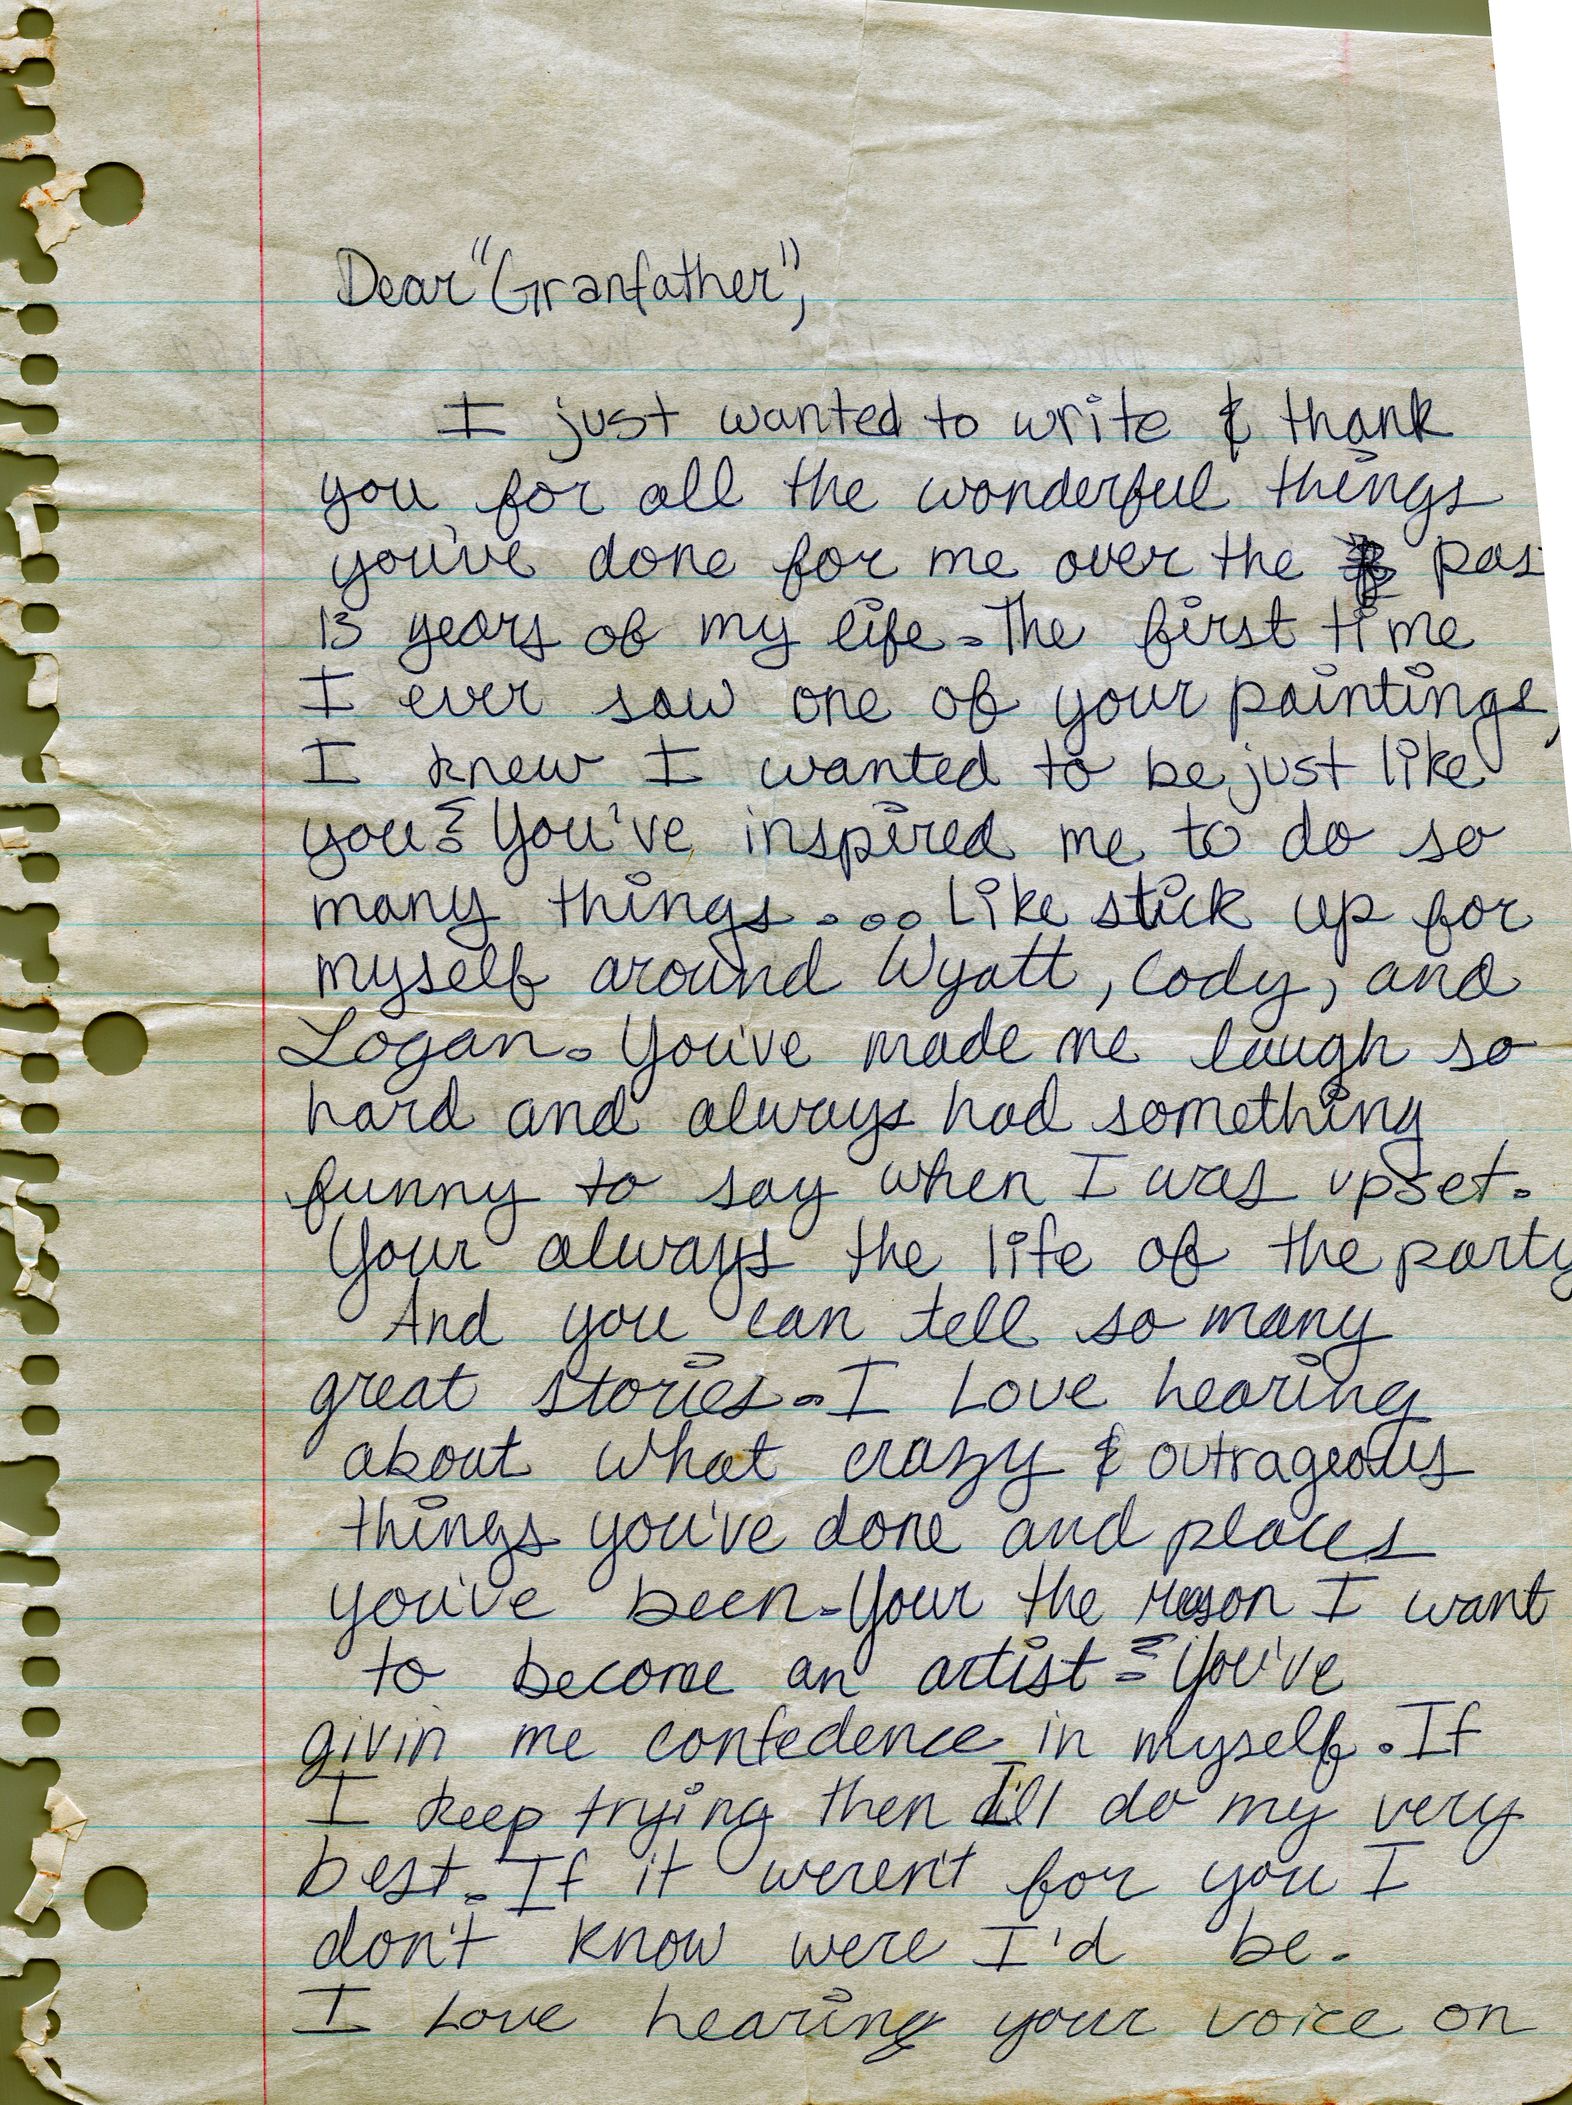 Dear "Granfather",
I just wanted to write & thank
you for all the wonderful things
you've done for me over the pas
13 years of my life. The first time
I ever saw one of your paintings,
I knew I wanted to be just like
you! You've inspired me to do so
many things.... Like stick up for
myself around Wyatt, Cody, and
Logan. You've made me laugh so
hard and always had something
funny to say when I was upset.
Your always the life of the party
And you can tell so many
great stories. I Love hearing
about what crazy & outrageous
things you've done and places
you've been. Your the reason I want
to become an artist! You've
givin me confedence in myself. If
I keep trying then I'll do my very
best. If it weren't for you I
don't know were I'd be.
I Love hearing your voice on